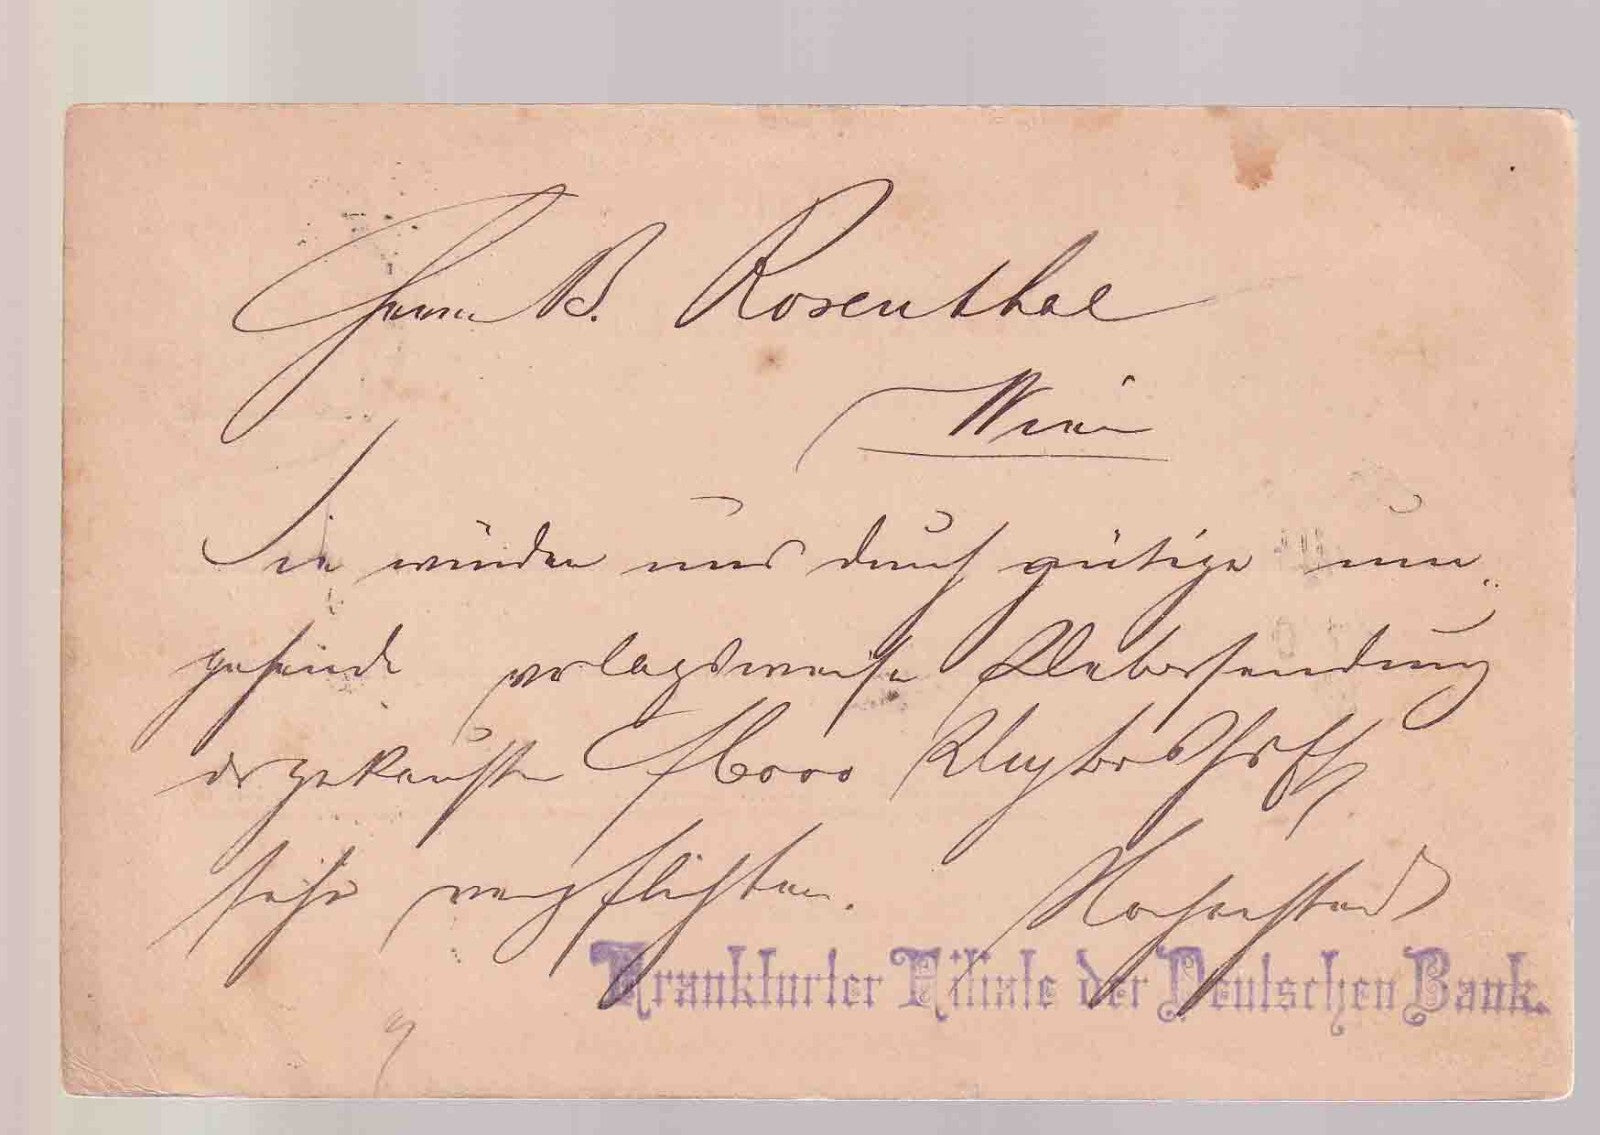 Herrn B. Rosenthal
Wien
Sie würden uns durch gütige um„
gehende verlagsweise Uebersendung
der gekauften f 6000
sehr verpflichten. Hochachtend
Frankfurter Filiale der Deutschen Bank.